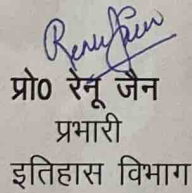 Renu Jain
प्रो0 रेनू जैन
प्रभारी
इतिहास विभाग